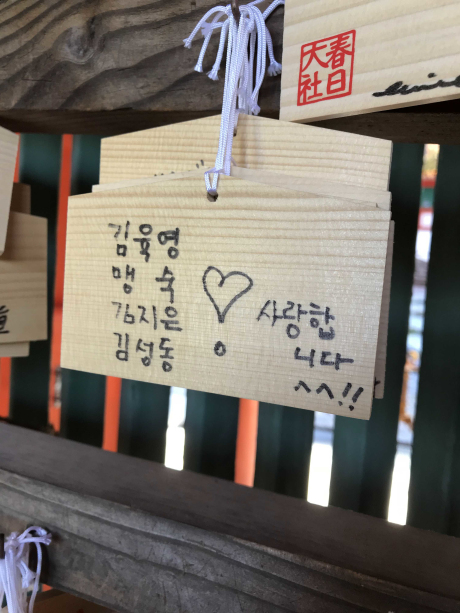 春日
大社
김육영
맹숙
김지은
김성동
사랑합
니다
^^!!